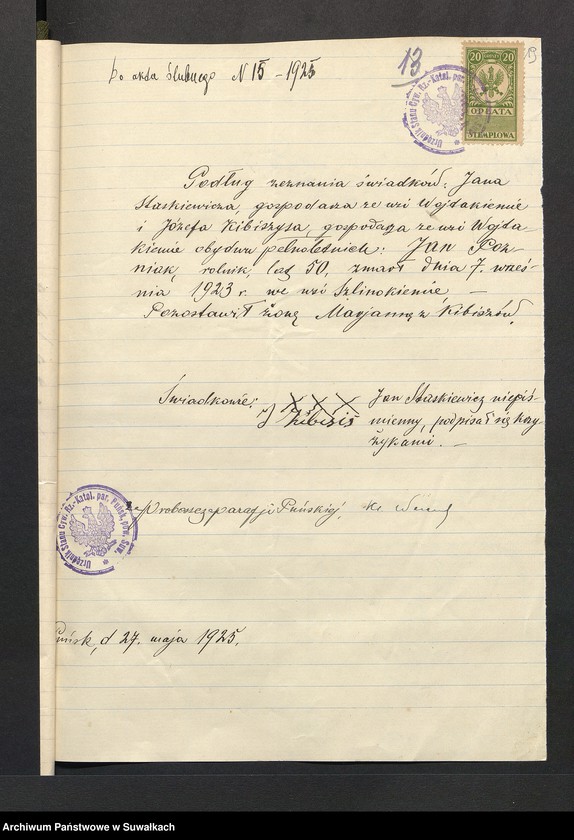 Do aktu ślubnego N 15 - 1925
13
19
20 20
OPŁATA
STEMPLOWA
Urzędnik Stanu Cyw. Rz.-Katol. par.
Podług zeznania świadków: Jana
Staskiewicza, gospodarza ze wsi Wojdakiemie
i Józefa Kibiszysa, gospodarza ze wsi Wojda-
kiemie obydwu pełnoletnich: Jan Poz-
niak, rolnik, lat 50, zmarł dnia 7. wrześ-
nia 1923 r. we wsi Szlinokiemie, —
Pozostawił żonę Marjannę z Kibiszów.
Świadkowie: XXX Jan Staskiewicz niepiś-
J Kibiśis mienny, podpisał się krzy-
żykami. —
Urzędnik Stanu Cyw. Rz.-Katol. par. Puńsk, pow. Suw.
za proboszcza parafji Puńskiej, Ks.
Puńsk, d 27. maja 1925.
Archiwum Państwowe w Suwałkach